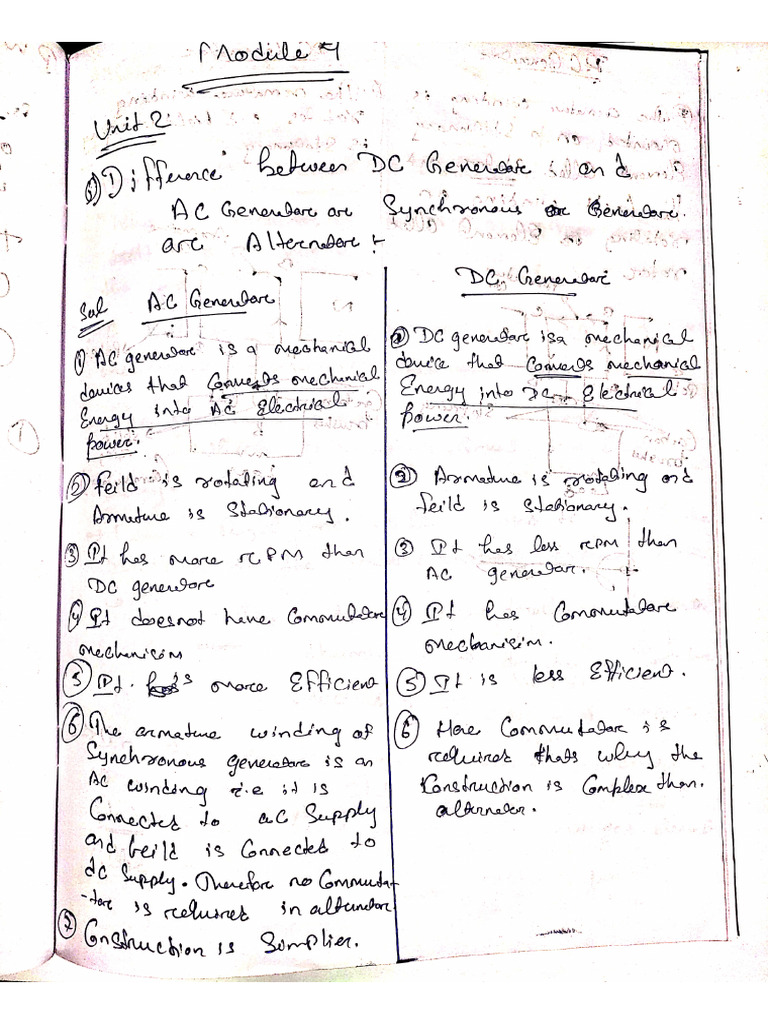 Module 4
Unit 2
Difference between DC Generator and
AC Generator or Synchronous or Generator
or Alternator :-
Sol AC Generator
① AC generator is a mechanical
devices that Converts mechanical
Energy into AC Electrical
power.
② feild is rotating and
Armature is Stationary.
③ It has more rpm than
DC generator
④ It doesnot have Commutator
mechanisim
⑤ It is more Efficient
⑥ The armature winding of
Synchronous generator is an
AC winding i.e it is
Connected to ac Supply
and feild is Connected to
dc Supply. Therefore no Commuta-
-tor is required in alternator
⑦ Construction is Simplier.
DC Generator
① DC generator is a mechanical
device that Converts mechanical
Energy into DC Electrical
power.
② Armature is rotating and
feild is stationary.
③ It has less rpm than
AC generator.
④ It has Commutator
mechanisim.
⑤ It is less Efficient.
⑥ Here Commutator is
required thats why the
Construction is Complex than.
alternator.